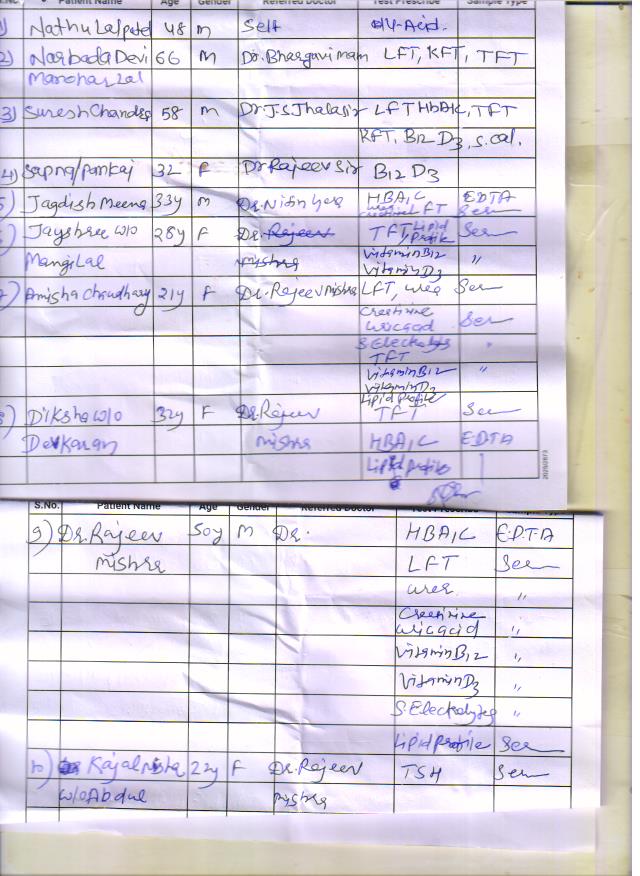 Patient Name Age Gender Referred Doctor Test Prescribe Sample Type
1) Nathu Lal patel 48 M Self
2) Narbada Devi 66 M Dr. Bhargavi mam LFT, KFT, TFT
Manoharlal
3) Suresh Chandra 58 M Dr J.S. LFT HbA1C, TFT
KFT, B12 D3, S.cal.
4) Sapna/Pankaj 32 F Dr Rajeev Sir B12 D3
5) Jagdish Meena 33y M Dr. Nitin HBA1C EDTA
urea creatinine LFT Ser
6) Jayshree w/o 28y F Dr. Rajeev TFT, Lipid Profile Ser
Mangilal mishra VitaminB12 "
VitaminD3
7) Amisha Chaudhary 21y F Dr. Rajeev mishra LFT, urea Ser
Creatinine
uricacid Ser
S. Electrolytes "
TFT
VitaminB12 "
VitaminD3
Lipid Profile
8) Diksha w/o 32y F Dr. Rajeev TFT Ser
Devkaran mishra HBA1C EDTA
Lipid profile
2025/2673
S.No. Patient Name Age Gender Referred Doctor Test Prescribe Sample Type
9) Dr. Rajeev 50y M Dr. HBA1C E.D.T.A
mishra LFT Ser
urea "
Creatinine
uricacid "
VitaminB12 "
VitaminD3 "
S. Electrolytes "
Lipid Profile Ser
10) Kajal 22y F Dr. Rajeev TSH Ser
w/o Abdul mishra